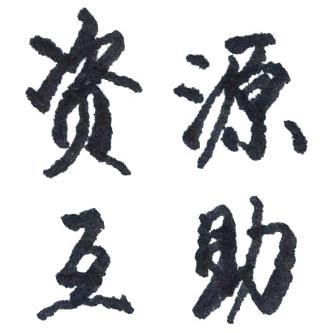 资源
互助